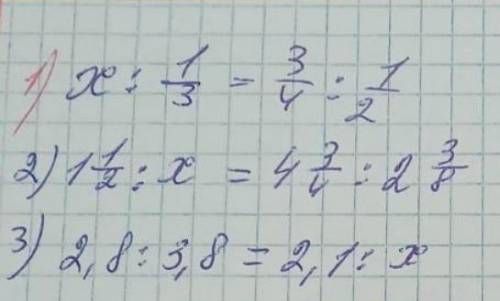 1) x : 1/3 = 3/4 : 1/2
2) 1 1/2 : x = 4 3/4 : 2 3/8
3) 2,8 : 3,8 = 2,1 : x